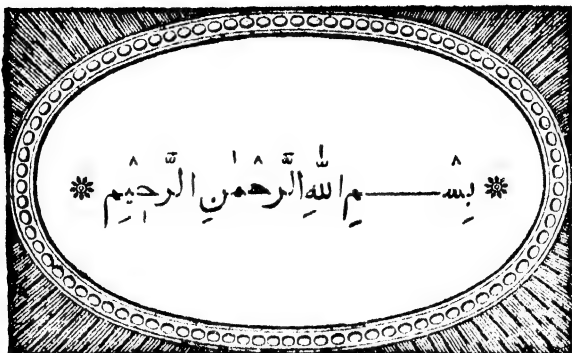 بِسْــــمِ اللّٰهِ الرَّحْمٰنِ الرَّحِيْمِ